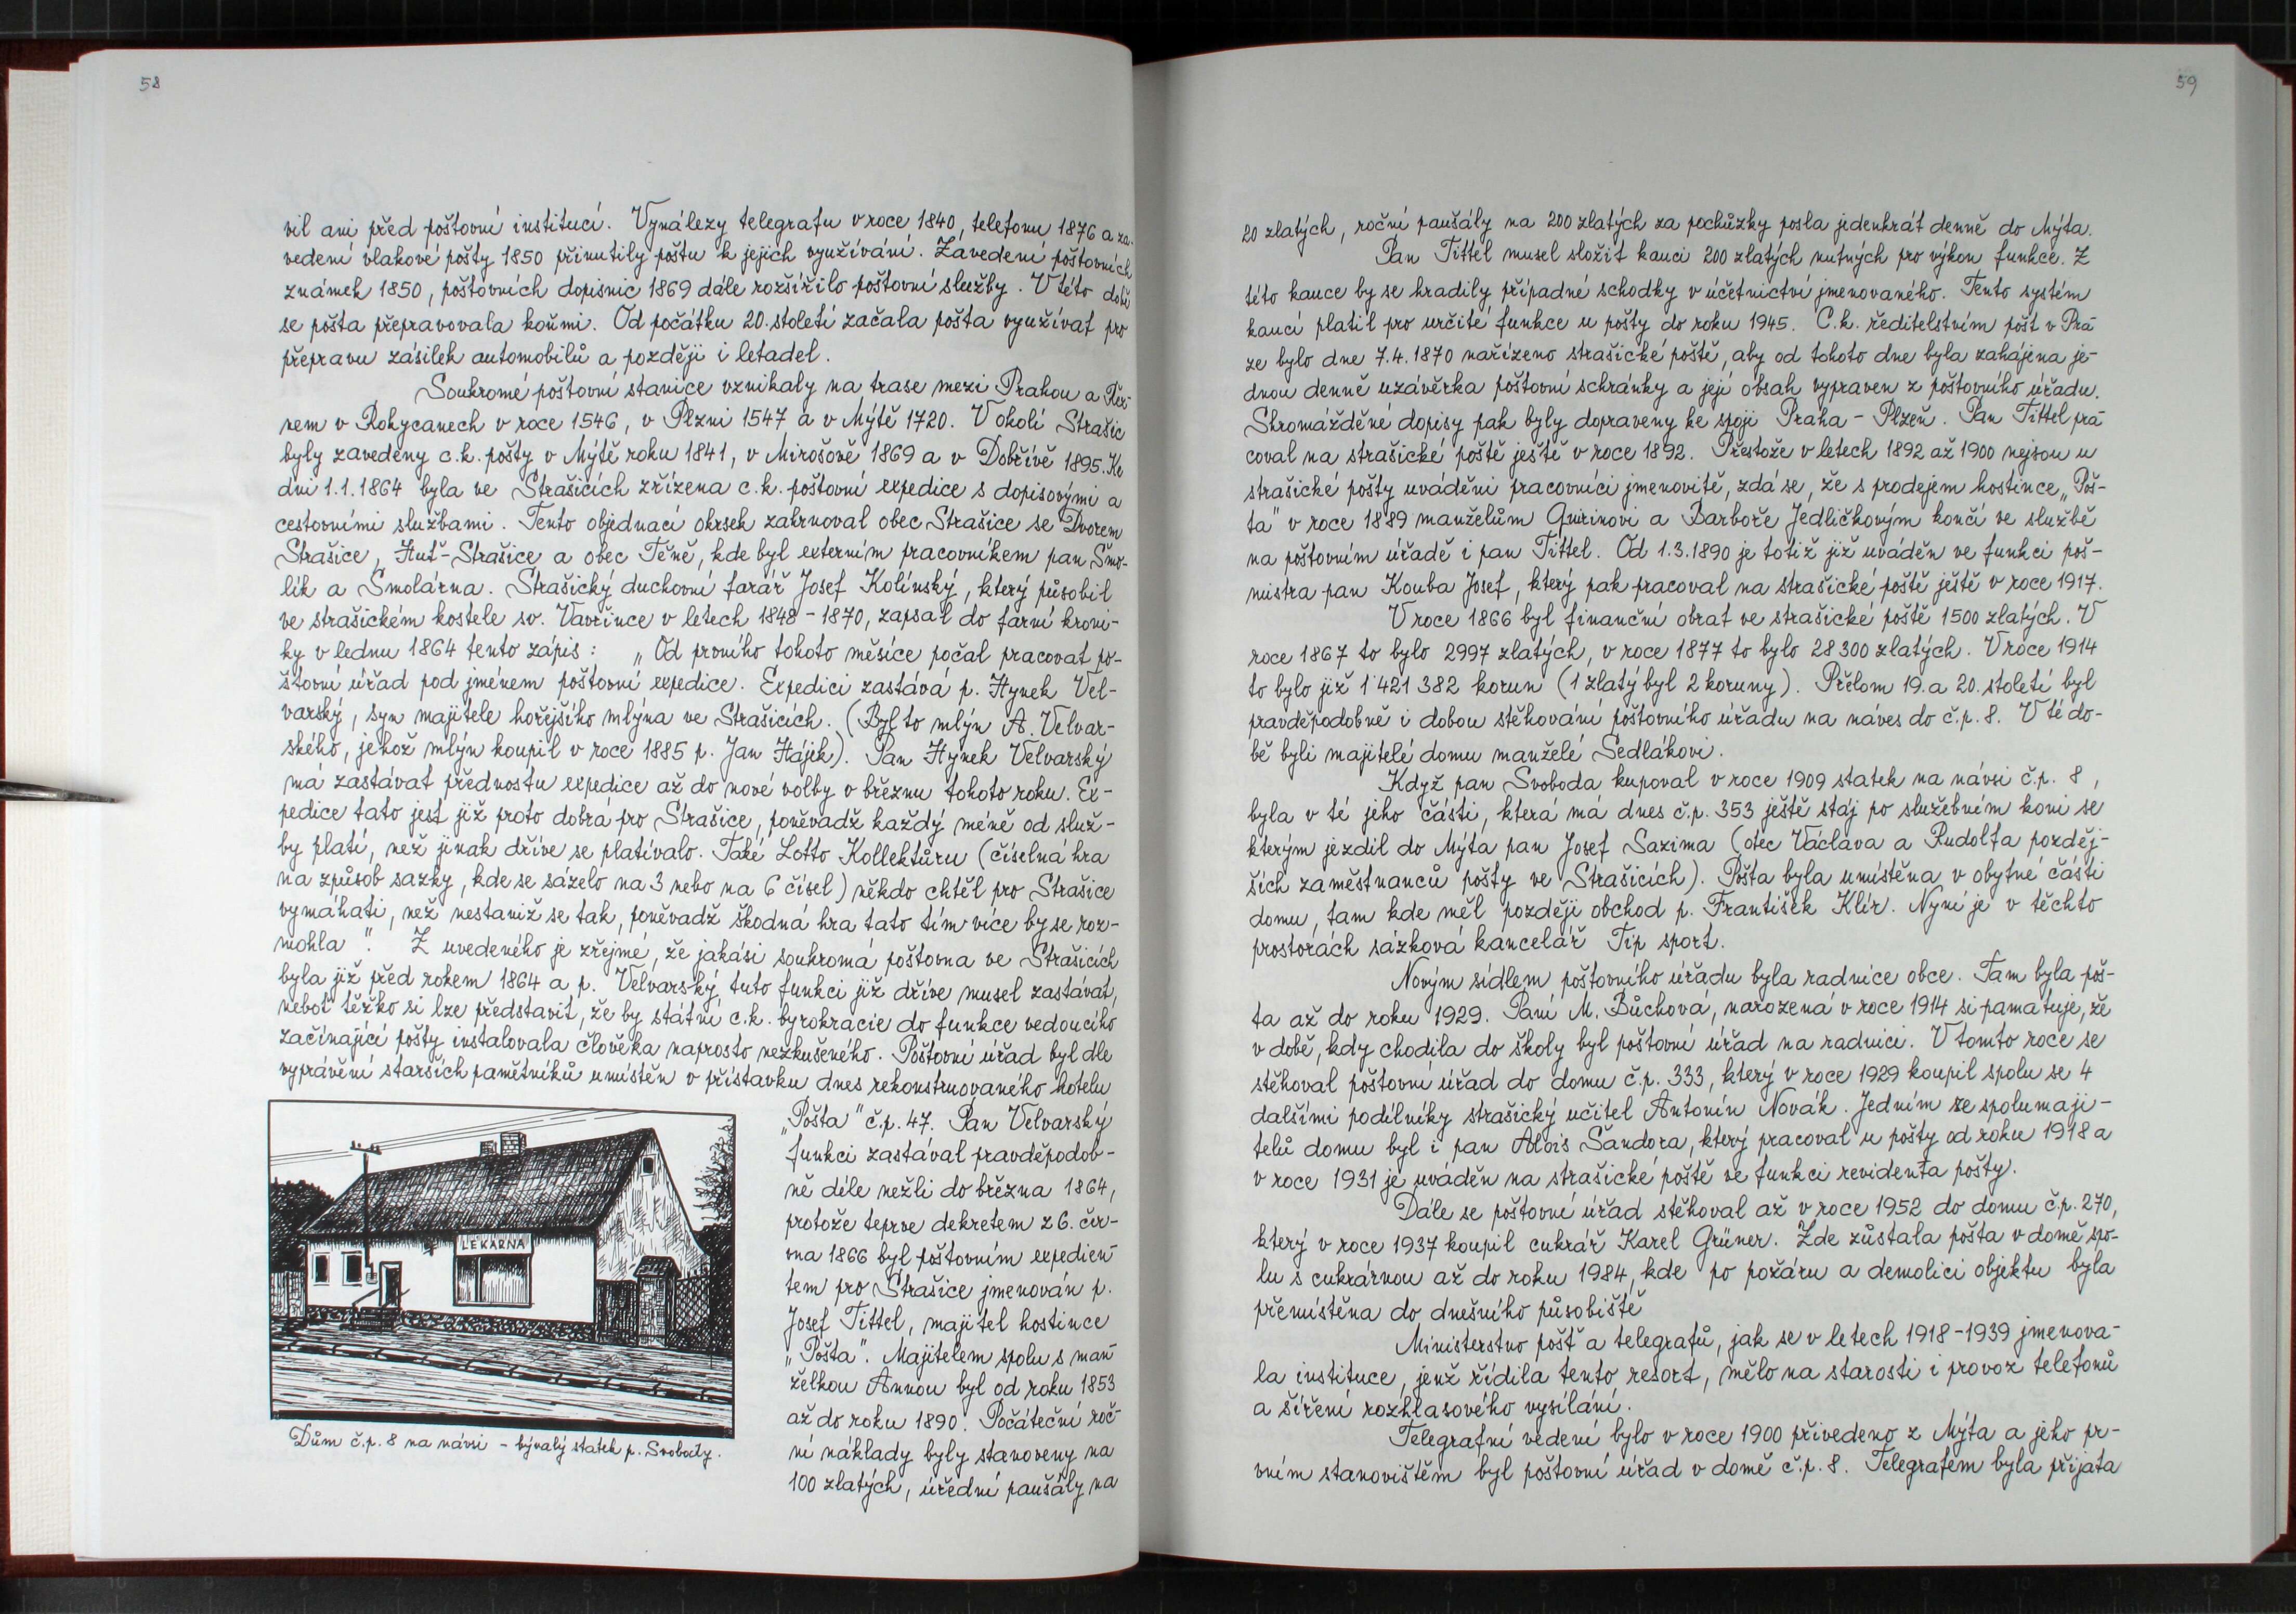 58
vil ani před poštovní institucí. Vynálezy telegrafu v roce 1840, telefonu 1876 a za-
vedení vlakové pošty 1850 přinutily poštu k jejich využívání. Zavedení poštovních
známek 1850, poštovních dopisnic 1869 dále rozšířilo poštovní služby. V této době
se pošta přepravovala koňmi. Od počátku 20. století začala pošta využívat pro
přepravu zásilek automobilů a později i letadel.
Soukromé poštovní stanice vznikaly na trase mezi Prahou a Řez-
nem v Rokycanech v roce 1546, v Plzni 1547 a v Mýtě 1720. V okolí Strašic
byly zavedeny c.k. pošty v Mýtě roku 1841, v Mirošově 1869 a v Dobřívě 1895. Ke
dni 1.1.1864 byla ve Strašicích zřízena c.k. poštovní expedice s dopisovými a
cestovními službami. Tento objednací okrsek zahrnoval obec Strašice se Dvorem
Strašice, Huť-Strašice a obec Těně, kde byl externím pracovníkem pan Smo-
lík a Smolárna. Strašický duchovní farář Josef Kolínský, který působil
ve strašickém kostele sv. Vavřince v letech 1848 - 1870, zapsal do farní kroni-
ky v lednu 1864 tento zápis: „Od prvního tohoto měsíce počal pracovat po-
štovní úřad pod jménem poštovní expedice. Expedici zastává p. Hynek Vel-
varský, syn majitele hořejšího mlýna ve Strašicích. (Byl to mlýn A. Velvar-
ského, jehož mlýn koupil v roce 1885 p. Jan Hájek). Pan Hynek Velvarský
má zastávat přednostu expedice až do nové volby v březnu tohoto roku. Ex-
pedice tato jest již proto dobrá pro Strašice, poněvadž každý méně od služ-
by platí, než jinak dříve se platívalo. Také Lotto Kollektůru (číselná hra
na způsob sazky, kde se sázelo na 3 nebo na 6 čísel) někdo chtěl pro Strašice
vymáhati, než nestaniž se tak, poněvadž škodná hra tato tím více by se roz-
mohla". Z uvedeného je zřejmé, že jakási soukromá poštovna ve Strašicích
byla již před rokem 1864 a p. Velvarský tuto funkci již dříve musel zastávat,
neboť těžko si lze představit, že by státní c.k. byrokracie do funkce vedoucího
začínající pošty instalovala člověka naprosto nezkušeného. Poštovní úřad byl dle
vyprávění starších pamětníků umístěn v přístavku dnes rekonstruovaného hotelu
„Pošta" č.p. 47. Pan Velvarský
funkci zastával pravděpodob-
ně déle nežli do března 1864,
protože teprve dekretem z 6. čer-
vna 1866 byl poštovním expedien-
tem pro Strašice jmenován p.
Josef Tittel, majitel hostince
„Pošta". Majitelem spolu s man-
želkou Annou byl od roku 1853
až do roku 1890. Počáteční roč-
ní náklady byly stanoveny na
100 zlatých, úřední paušály na
LÉKÁRNA
Dům č.p. 8 na návsi - bývalý statek p. Svobody.
59
20 zlatých, roční paušály na 200 zlatých za pochůzky posla jedenkrát denně do Mýta.
Pan Tittel musel složit kauci 200 zlatých nutných pro výkon funkce. Z
této kauce by se hradily případné schodky v účetnictví jmenovaného. Tento systém
kaucí platil pro určité funkce u pošty do roku 1945. C.k. ředitelstvím pošt v Pra-
ze bylo dne 7.4.1870 nařízeno strašické poště, aby od tohoto dne byla zahájena je-
dnou denně uzávěrka poštovní schránky a její obsah vypraven z poštovního úřadu.
Shromážděné dopisy pak byly dopraveny ke spoji Praha - Plzeň. Pan Tittel pra-
coval na strašické poště ještě v roce 1892. Přestože v letech 1892 až 1900 nejsou u
strašické pošty uváděni pracovníci jmenovitě, zdá se, že s prodejem hostince „Poš-
ta" v roce 1889 manželům Quirinovi a Barboře Jedličkovým končí ve službě
na poštovním úřadě i pan Tittel. Od 1.3.1890 je totiž již uváděn ve funkci poš-
mistra pan Kouba Josef, který pak pracoval na strašické poště ještě v roce 1917.
V roce 1866 byl finanční obrat ve strašické poště 1500 zlatých. V
roce 1867 to bylo 2997 zlatých, v roce 1877 to bylo 28 300 zlatých. V roce 1914
to bylo již 1˙421 382 korun (1 zlatý byl 2 koruny). Přelom 19. a 20. století byl
pravděpodobně i dobou stěhování poštovního úřadu na náves do č.p. 8. V té do-
bě byli majitelé domu manželé Sedlákovi.
Když pan Svoboda kupoval v roce 1909 statek na návsi č.p. 8,
byla v té jeho části, která má dnes č.p. 353 ještě stáj po služebním koni se
kterým jezdil do Mýta pan Josef Sazima (otec Václava a Rudolfa pozděj-
ších zaměstnanců pošty ve Strašicích). Pošta byla umístěna v obytné části
domu, tam kde měl později obchod p. František Klír. Nyní je v těchto
prostorách sázková kancelář Tip sport.
Novým sídlem poštovního úřadu byla radnice obce. Tam byla poš-
ta až do roku 1929. Paní M. Bůchová, narozená v roce 1914 si pamatuje, že
v době, kdy chodila do školy byl poštovní úřad na radnici. V tomto roce se
stěhoval poštovní úřad do domu č.p. 333, který v roce 1929 koupil spolu se 4
dalšími podílníky strašický učitel Antonín Novák. Jedním ze spolumaji-
telů domu byl i pan Alois Šandora, který pracoval u pošty od roku 1918 a
v roce 1931 je uváděn na strašické poště ve funkci revidenta pošty.
Dále se poštovní úřad stěhoval až v roce 1952 do domu č.p. 270,
který v roce 1937 koupil cukrář Karel Grüner. Zde zůstala pošta v domě spo-
lu s cukrárnou až do roku 1984, kde po požáru a demolici objektu byla
přemístěna do dnešního působiště
Ministerstvo pošt a telegrafů, jak se v letech 1918-1939 jmenova-
la instituce, jenž řídila tento resort, mělo na starosti i provoz telefonů
a šíření rozhlasového vysílání.
Telegrafní vedení bylo v roce 1900 přivedeno z Mýta a jeho pr-
vním stanovištěm byl poštovní úřad v domě č.p. 8. Telegrafem byla přijata